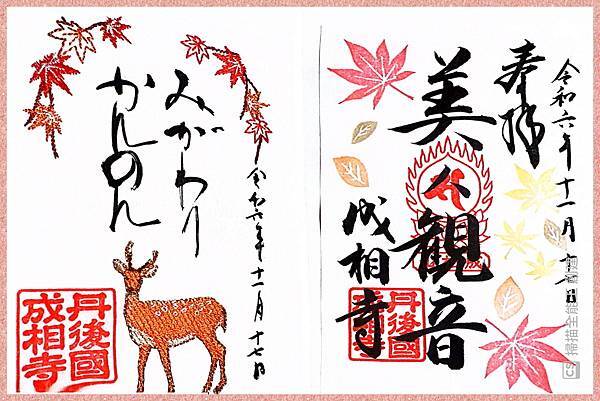 令和六年十一月十
奉拝
美人観音
成相寺
丹後國
令和六年十一月十七日
みがわり
かんのん
丹後國
成相寺
CS 掃描全能